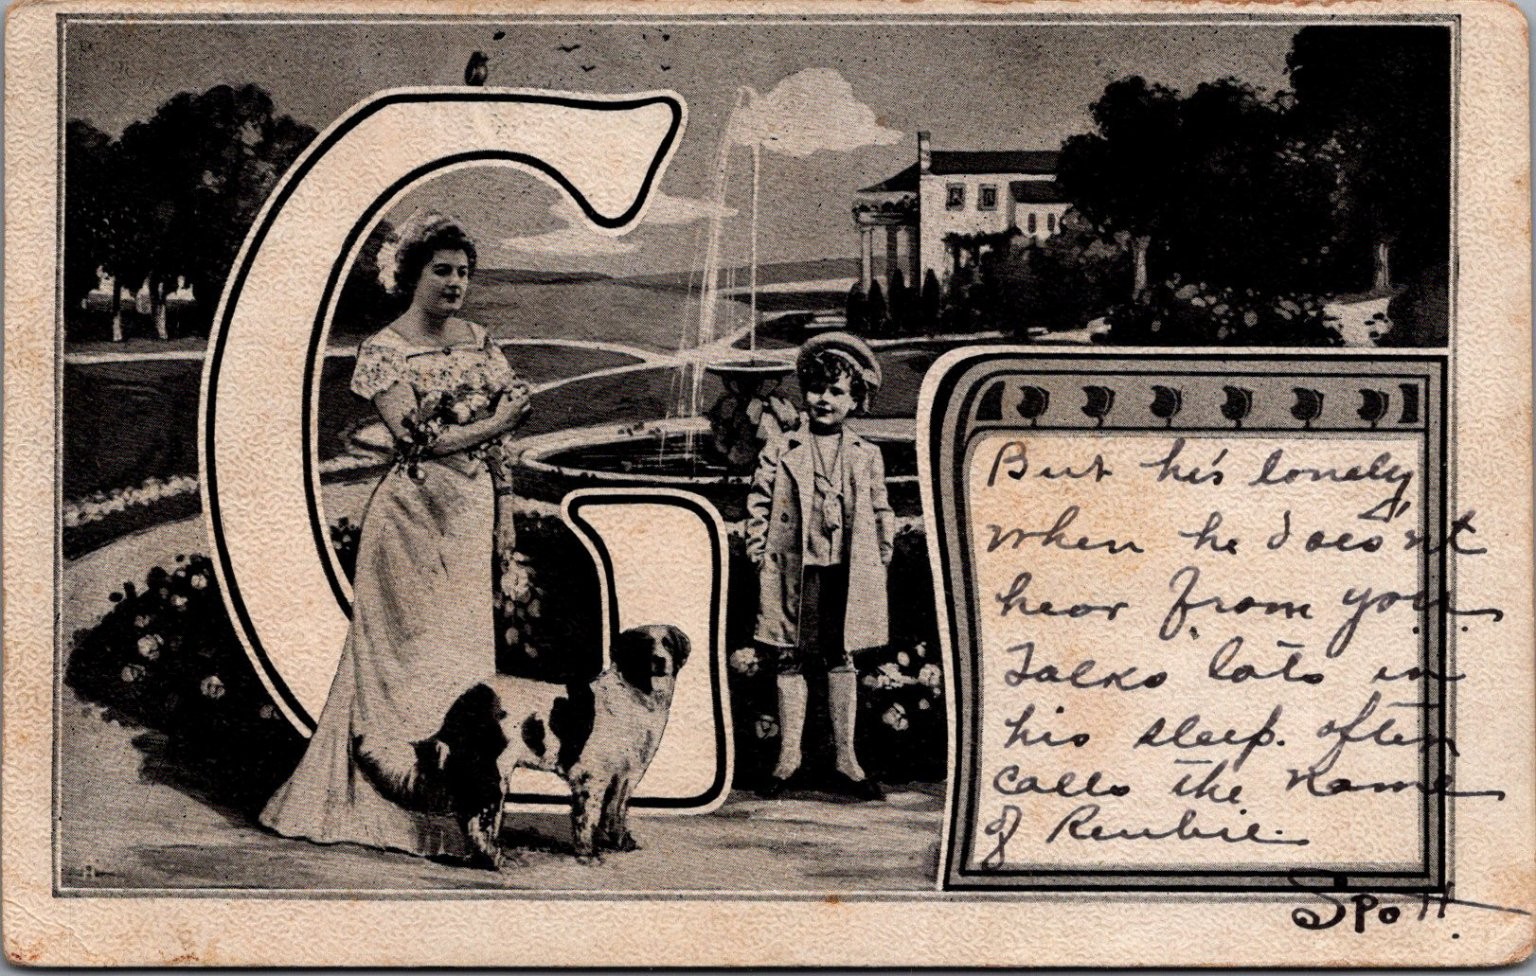 G
But he's lonely
when he does'nt
hear from you.
Talks lots in
his sleep. often
calls the name
of Reubie.
Spott.